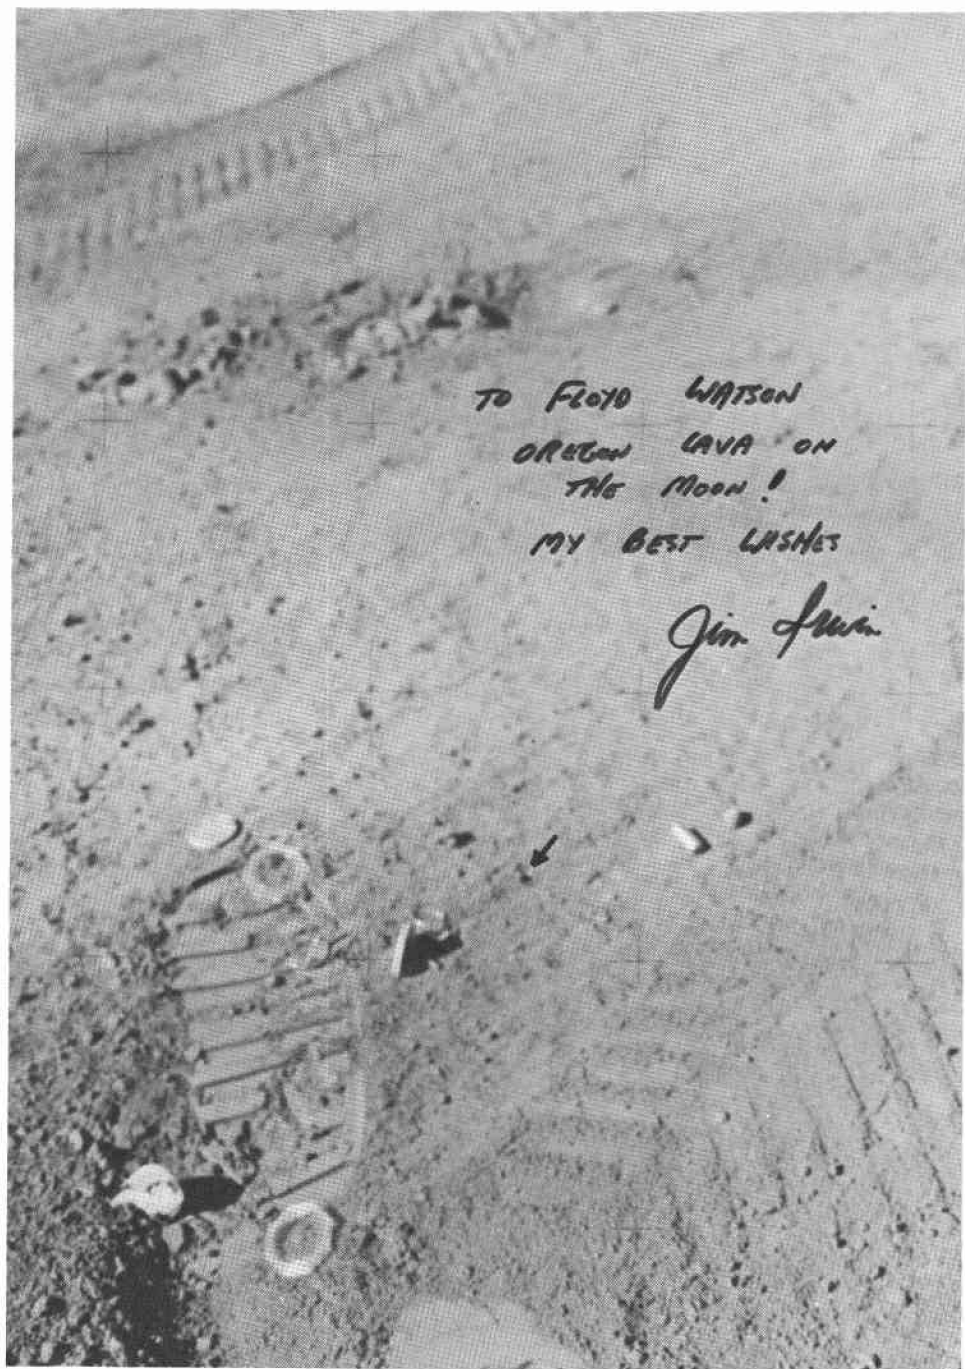 TO FLOYD WATSON
OREGON LAVA ON
THE MOON!
MY BEST WISHES
Jim Irwin